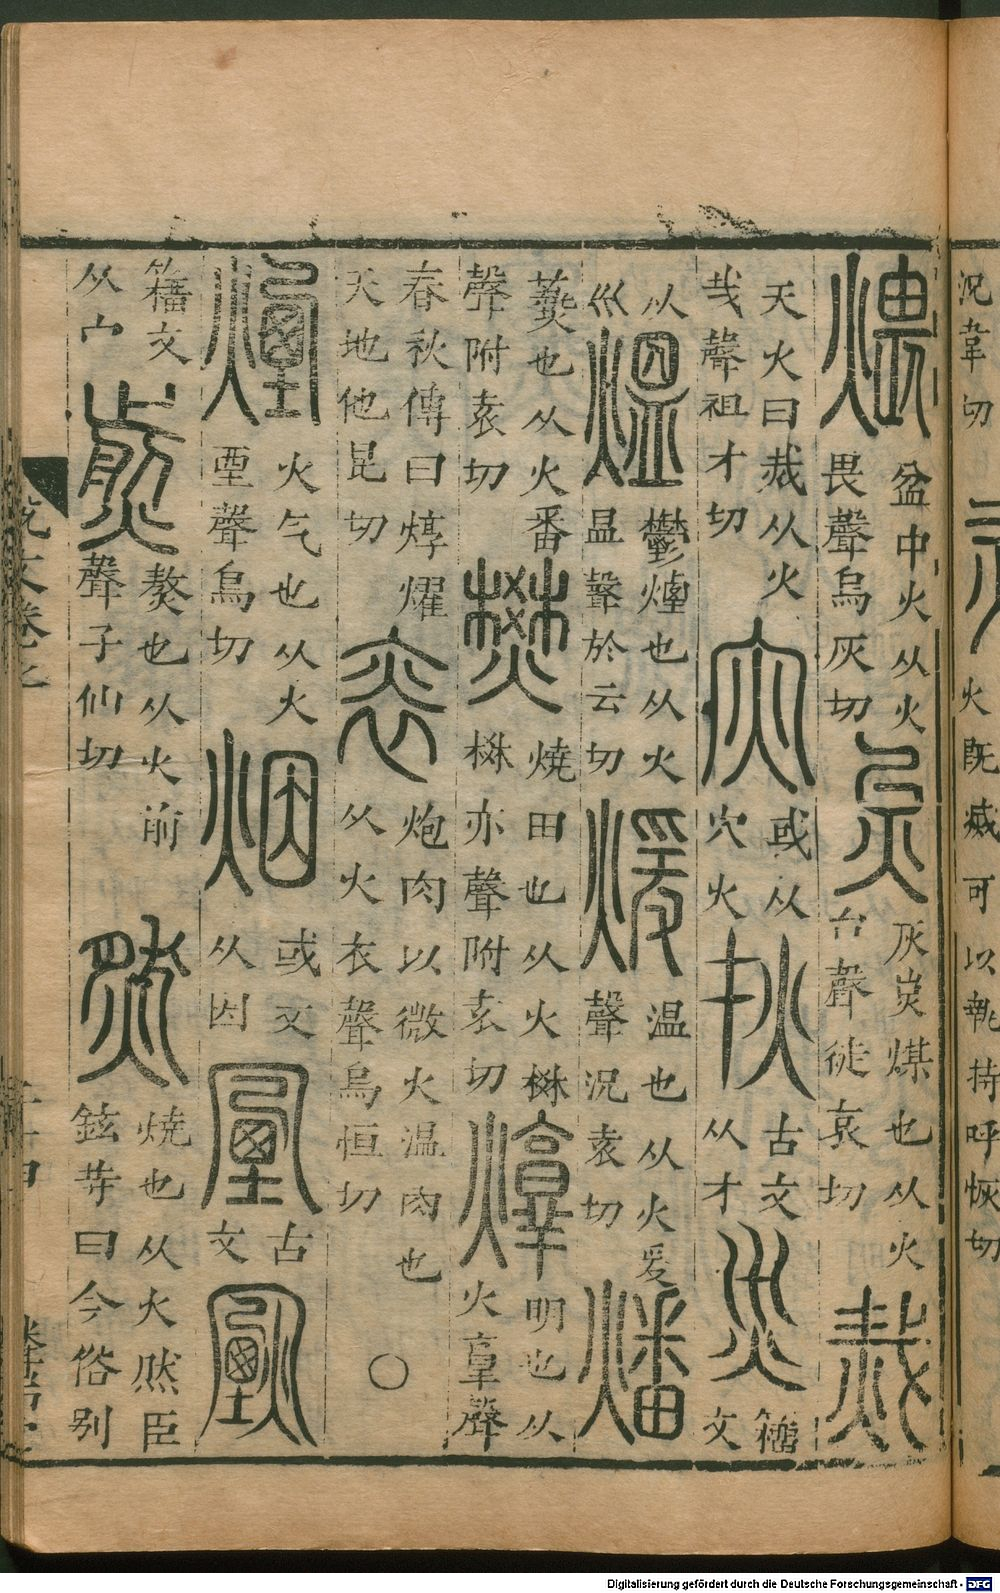 況韋切 火既滅可以執持呼恢切
煨 盆中火从火畏聲烏灰切 炱 灰炭煤也从火台聲徒哀切 烖
天火曰烖从火𢦏聲祖才切 灾 或从穴火 𤆎 古文从才 災 籒文
从巛 熅 鬱煙也从火𥁕聲於云切 煖 温也从火爰聲況袁切 燔
爇也从火番聲附袁切 燓 燒田也从火棥棥亦聲附袁切 焞 明也从火𦎫聲
春秋傳曰焞燿天地他昆切 𤇯 炮肉以微火温肉也从火衣聲烏恒切 ○
煙 火气也从火垔聲烏切 烟 或文从因 古文
籒文从宀 煎 熬也从火前聲子仙切 然 燒也从火肰臣鉉等曰今俗别
Digitalisierung gefördert durch die Deutsche Forschungsgemeinschaft - DFG